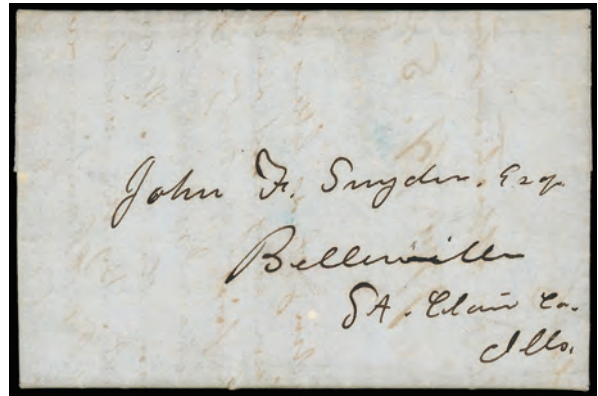 John F. Snyder. Esq.
Belleville
St. Clair Co.
Ills.